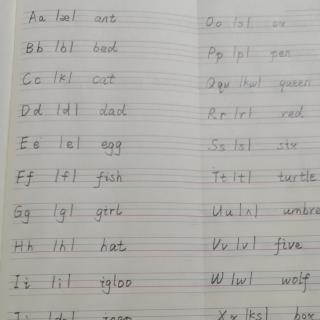 Aa /æ/ ant
Bb /b/ bed
Cc /k/ cat
Dd /d/ dad
Ee /e/ egg
Ff /f/ fish
Gg /g/ girl
Hh /h/ hat
Ii /i/ igloo
Oo
Pp /p/ pen
Qqu /kw/ queen
Rr /r/ red
Ss /s/ six
Tt /t/ turtle
Uu /ʌ/ umbre
Vv /v/ five
W /w/ wolf
Xx /ks/ box